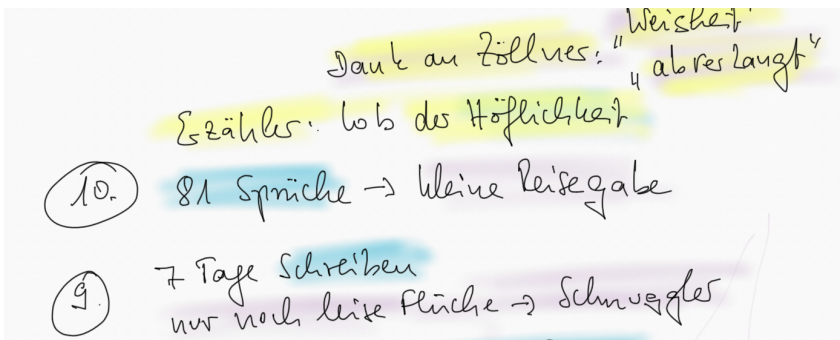 "Weisheit"
Dank an Zöllner: "abverlangt"
Erzähler: Lob der Höflichkeit
10. 81 Sprüche → kleine Reisegabe
9. 7 Tage Schreiben
nur noch leise Flüche → Schmuggler